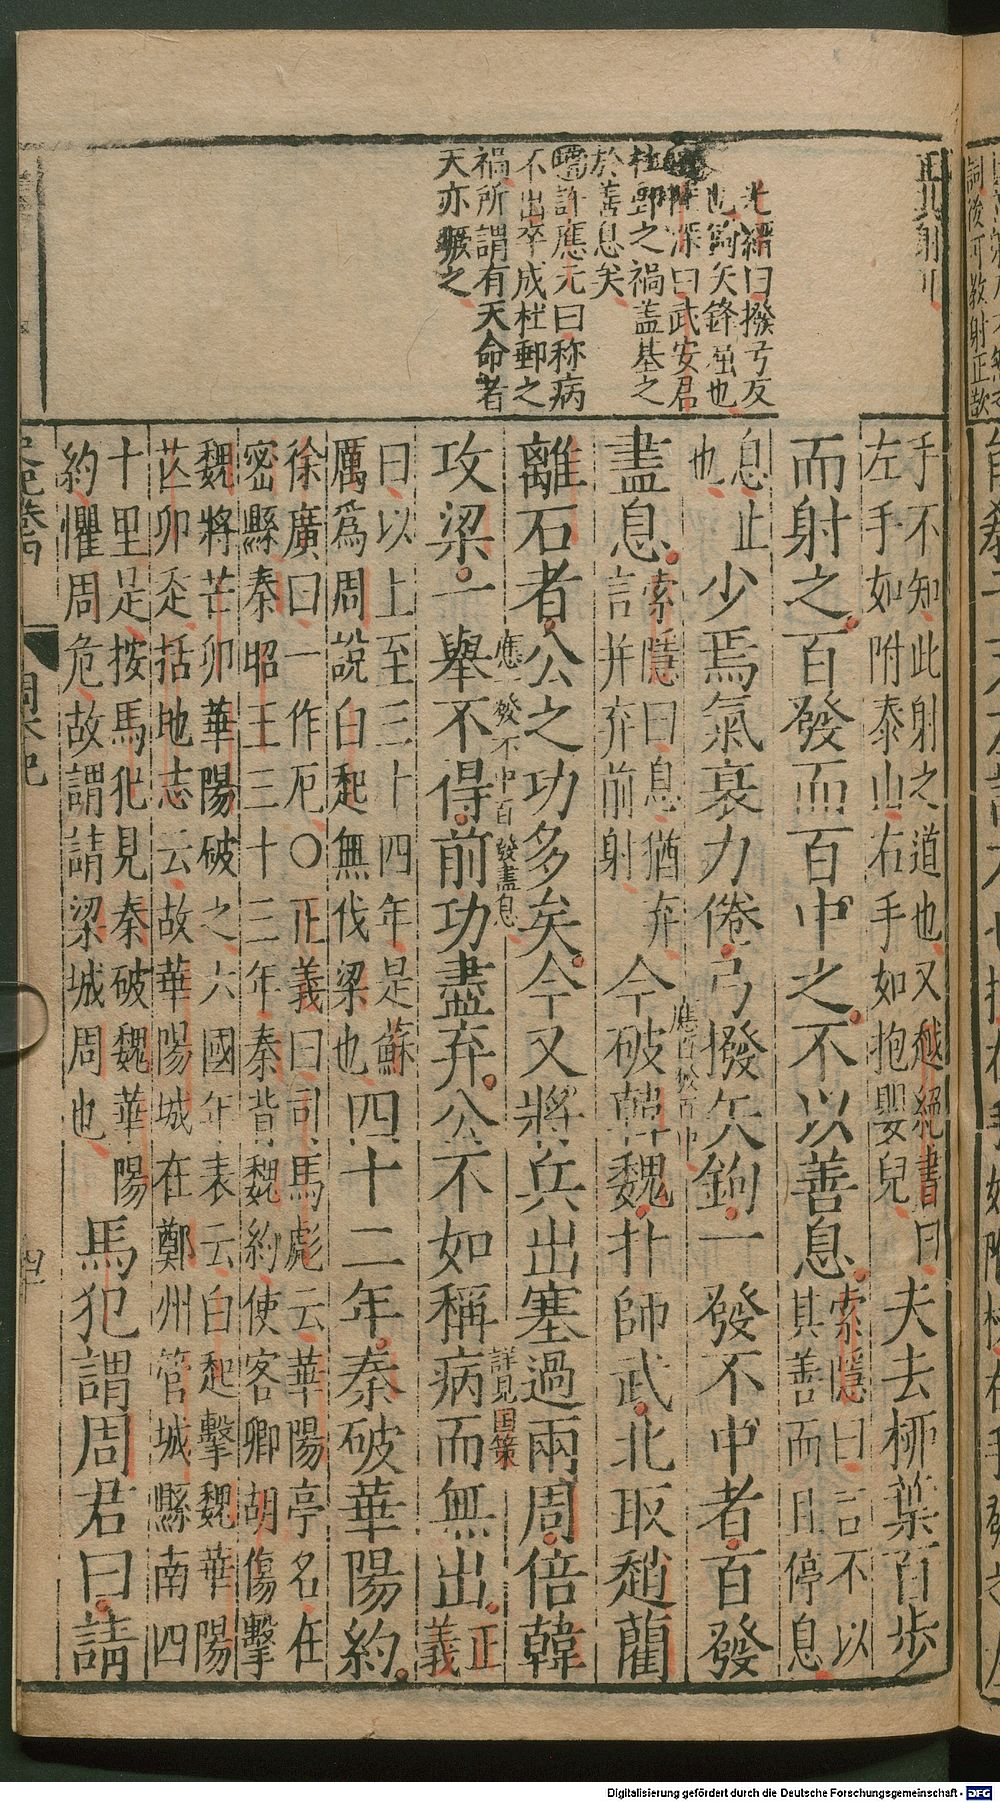 光縉曰撥弓反
也鉤矢鋒屈也
深曰武安君
杜郵之禍蓋基之
於善息矣
許應元曰称病
不出卒成杜郵之
禍所謂有天命者
天亦厭之
手不知此射之道也又越絕書曰
左手如附泰山右手如抱嬰兒
夫去柳葉百步
而射之百發而百中之不以善息
索隱曰言不以
其善而且停息
息止
也
少焉氣衰力倦弓撥矢鉤一發不中者百發
應百發百中
盡息
索隱曰息猶弃
言并弃前射
今破韓魏扑師武北取趙藺
離石者公之功多矣今又將兵出塞過兩周倍韓
應一發不中百發盡息
攻梁一舉不得前功盡弃公不如稱病而無出
詳見国策
正
義
曰以上至三十四年是蘇
厲爲周說白起無伐梁也
四十二年秦破華陽約
徐廣曰一作厄○正義曰司馬彪云華陽亭名在
密縣秦昭王三十三年秦背魏約使客卿胡傷擊
魏將芒卯華陽破之六國年表云白起擊魏華陽
芒卯走括地志云故華陽城在鄭州管城縣南四
十里足按馬犯見秦破魏華陽
約懼周危故謂請梁城周也
馬犯謂周君曰請
周本紀
Digitalisierung gefördert durch die Deutsche Forschungsgemeinschaft - DFG